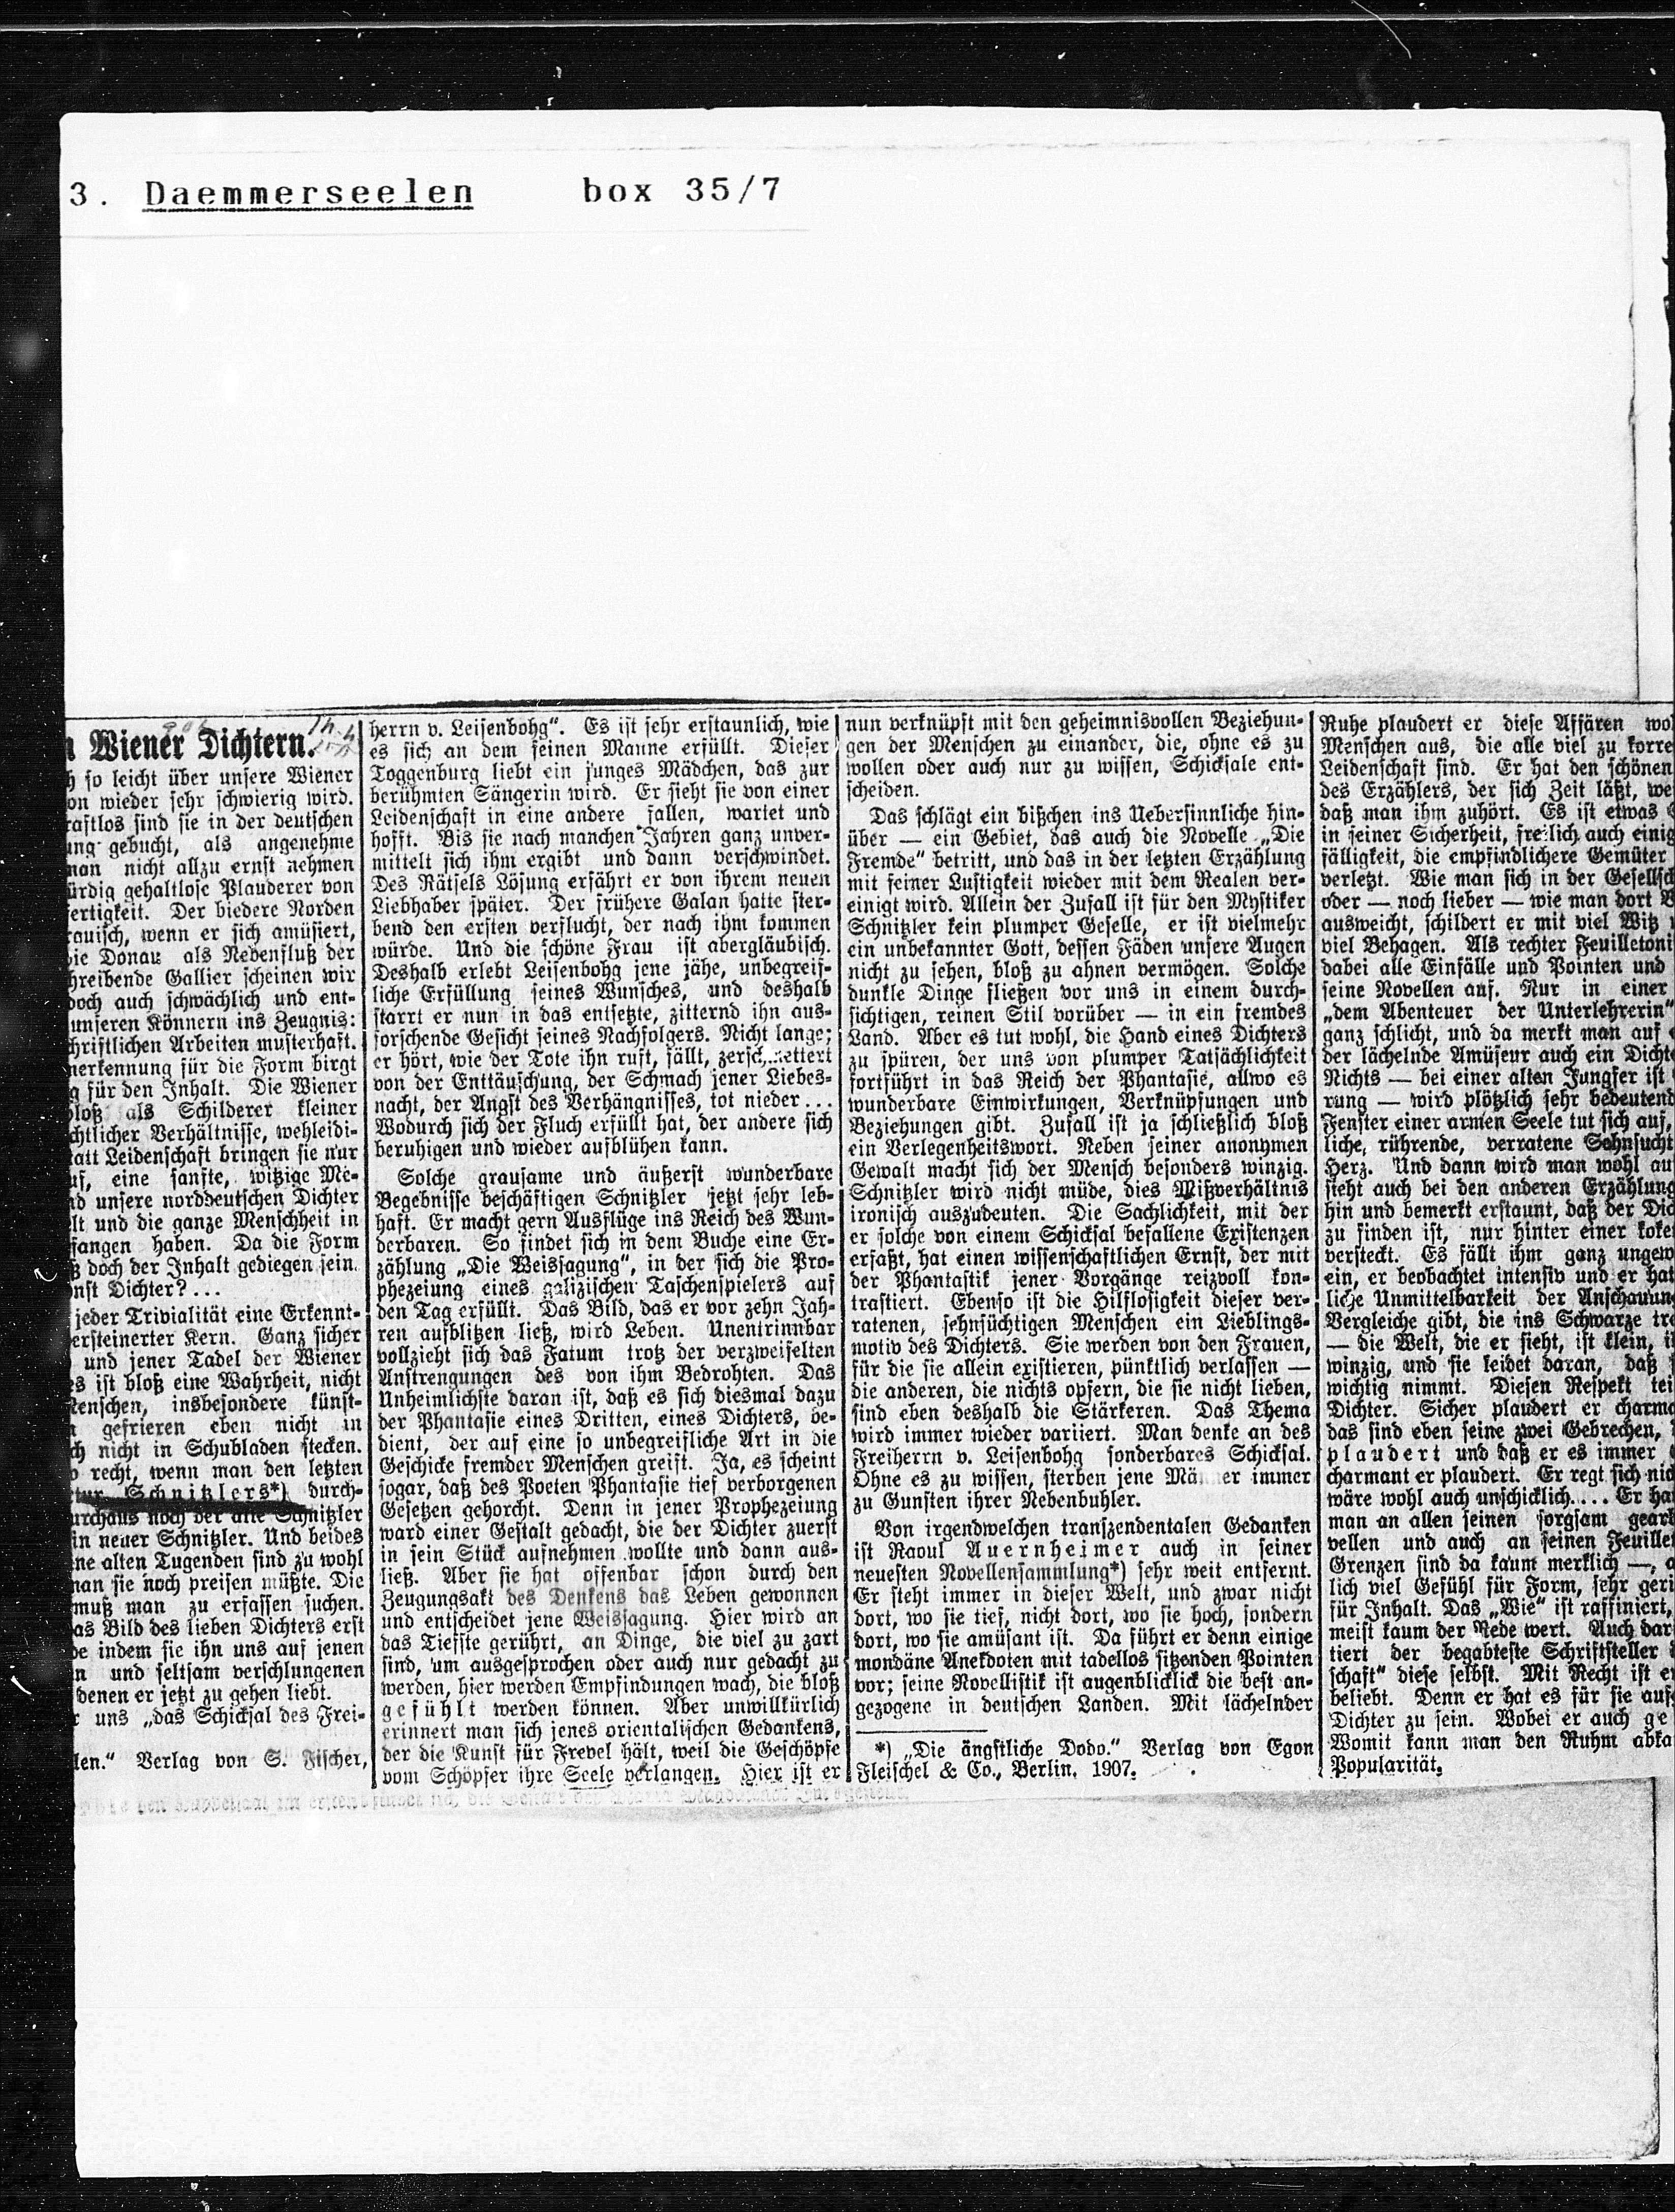 3. Daemmerseelen box 35/7
Wiener Dichtern.
so leicht über unsere Wiener
wieder sehr schwierig wird.
sind sie in der deutschen
gebucht, als angenehme
nicht allzu ernst nehmen
gehaltlose Plauderer von
Der biedere Norden
wenn er sich amüsiert,
Donau als Nebenfluß der
Gallier scheinen wir
auch schwächlich und ent-
unseren Könnern ins Zeugnis:
Arbeiten musterhaft.
für die Form birgt
für den Inhalt. Die Wiener
als Schilderer kleiner
Verhältnisse, wehleidi-
Leidenschaft bringen sie nur
eine sanfte, witzige Me-
unsere norddeutschen Dichter
und die ganze Menschheit in
haben. Da die Form
doch der Inhalt gediegen sein.
Dichter? ...
jeder Trivialität eine Erkennt-
Kern. Ganz sicher
und jener Tadel der Wiener
ist bloß eine Wahrheit, nicht
insbesondere künst-
gefrieren eben nicht in
nicht in Schubladen stecken.
recht, wenn man den letzten
Schnitzlers*) durch-
noch der alte Schnitzler
neuer Schnitzler. Und beides
alten Tugenden sind zu wohl
sie noch preisen müßte. Die
muß man zu erfassen suchen.
Bild des lieben Dichters erst
indem sie ihn uns auf jenen
und seltsam verschlungenen
denen er jetzt zu gehen liebt.
uns „das Schicksal des Frei-
Verlag von S. Fischer,
herrn v. Leisenbohg“. Es ist sehr erstaunlich, wie
es sich an dem feinen Manne erfüllt. Dieser
Toggenburg liebt ein junges Mädchen, das zur
berühmten Sängerin wird. Er sieht sie von einer
Leidenschaft in eine andere fallen, wartet und
hofft. Bis sie nach manchen Jahren ganz unver-
mittelt sich ihm ergibt und dann verschwindet.
Des Rätsels Lösung erfährt er von ihrem neuen
Liebhaber später. Der frühere Galan hatte ster-
bend den ersten verflucht, der nach ihm kommen
würde. Und die schöne Frau ist abergläubisch.
Deshalb erlebt Leisenbohg jene jähe, unbegreif-
liche Erfüllung seines Wunsches, und deshalb
starrt er nun in das entsetzte, zitternd ihn aus-
forschende Gesicht seines Nachfolgers. Nicht lange;
er hört, wie der Tote ihn ruft, fällt, zerschmettert
von der Enttäuschung, der Schmach jener Liebes-
nacht, der Angst des Verhängnisses, tot nieder ...
Wodurch sich der Fluch erfüllt hat, der andere sich
beruhigen und wieder aufblühen kann.
Solche grausame und äußerst wunderbare
Begebnisse beschäftigen Schnitzler jetzt sehr leb-
haft. Er macht gern Ausflüge ins Reich des Wun-
derbaren. So findet sich in dem Buche eine Er-
zählung „Die Weissagung“, in der sich die Pro-
phezeiung eines galizischen Taschenspielers auf
den Tag erfüllt. Das Bild, das er vor zehn Jah-
ren aufblitzen ließ, wird Leben. Unentrinnbar
vollzieht sich das Fatum trotz der verzweifelten
Anstrengungen des von ihm Bedrohten. Das
Unheimlichste daran ist, daß es sich diesmal dazu
der Phantasie eines Dritten, eines Dichters, be-
dient, der auf eine so unbegreifliche Art in die
Geschicke fremder Menschen greift. Ja, es scheint
sogar, daß des Poeten Phantasie tief verborgenen
Gesetzen gehorcht. Denn in jener Prophezeiung
ward einer Gestalt gedacht, die der Dichter zuerst
in sein Stück aufnehmen wollte und dann aus-
ließ. Aber sie hat offenbar schon durch den
Zeugungsakt des Denkens das Leben gewonnen
und entscheidet jene Weissagung. Hier wird an
das Tiefste gerührt, an Dinge, die viel zu zart
sind, um ausgesprochen oder auch nur gedacht zu
werden, hier werden Empfindungen wach, die bloß
gefühlt werden können. Aber unwillkürlich
erinnert man sich jenes orientalischen Gedankens,
der die Kunst für Frevel hält, weil die Geschöpfe
vom Schöpfer ihre Seele verlangen. Hier ist er
nun verknüpft mit den geheimnisvollen Beziehun-
gen der Menschen zu einander, die, ohne es zu
wollen oder auch nur zu wissen, Schicksale ent-
scheiden.
Das schlägt ein bißchen ins Uebersinnliche hin-
über — ein Gebiet, das auch die Novelle „Die
Fremde“ betritt, und das in der letzten Erzählung
mit feiner Lustigkeit wieder mit dem Realen ver-
einigt wird. Allein der Zufall ist für den Mystiker
Schnitzler kein plumper Geselle, er ist vielmehr
ein unbekannter Gott, dessen Fäden unsere Augen
nicht zu sehen, bloß zu ahnen vermögen. Solche
dunkle Dinge fließen vor uns in einem durch-
sichtigen, reinen Stil vorüber — in ein fremdes
Land. Aber es tut wohl, die Hand eines Dichters
zu spüren, der uns von plumper Tatsächlichkeit
fortführt in das Reich der Phantasie, allwo es
wunderbare Einwirkungen, Verknüpfungen und
Beziehungen gibt. Zufall ist ja schließlich bloß
ein Verlegenheitswort. Neben seiner anonymen
Gewalt macht sich der Mensch besonders winzig.
Schnitzler wird nicht müde, dies Mißverhältnis
ironisch auszudeuten. Die Sachlichkeit, mit der
er solche von einem Schicksal befallene Existenzen
erfaßt, hat einen wissenschaftlichen Ernst, der mit
der Phantastik jener Vorgänge reizvoll kon-
trastiert. Ebenso ist die Hilflosigkeit dieser ver-
ratenen, sehnsüchtigen Menschen ein Lieblings-
motiv des Dichters. Sie werden von den Frauen,
für die sie allein existieren, pünktlich verlassen —
die anderen, die nichts opfern, die sie nicht lieben,
sind eben deshalb die Stärkeren. Das Thema
wird immer wieder variiert. Man denke an des
Freiherrn v. Leisenbohg sonderbares Schicksal.
Ohne es zu wissen, sterben jene Männer immer
zu Gunsten ihrer Nebenbuhler.
Von irgendwelchen transzendentalen Gedanken
ist Raoul Auernheimer auch in seiner
neuesten Novellensammlung*) sehr weit entfernt.
Er steht immer in dieser Welt, und zwar nicht
dort, wo sie tief, nicht dort, wo sie hoch, sondern
dort, wo sie amüsant ist. Da führt er denn einige
mondäne Anekdoten mit tadellos sitzenden Pointen
vor; seine Novellistik ist augenblicklick die best an-
gezogene in deutschen Landen. Mit lächelnder
*) „Die ängstliche Dodo.“ Verlag von Egon
Fleischel & Co., Berlin. 1907.
Ruhe plaudert er diese Affären
Menschen aus, die alle viel zu
Leidenschaft sind. Er hat den schönen
des Erzählers, der sich Zeit läßt,
daß man ihm zuhört. Es ist etwas
in seiner Sicherheit, freilich auch
fälligkeit, die empfindlichere Gemüter
verletzt. Wie man sich in der
oder — noch lieber — wie man dort
ausweicht, schildert er mit viel Witz
viel Behagen. Als rechter
dabei alle Einfälle und Pointen und
seine Novellen auf. Nur in einer
„dem Abenteuer der Unterlehrerin“
ganz schlicht, und da merkt man auf
der lächelnde Amüseur auch ein
Nichts — bei einer alten Jungfer ist
rung — wird plötzlich sehr
Fenster einer armen Seele tut sich auf,
liche, rührende, verratene Sehnsucht
Herz. Und dann wird man wohl
sieht auch bei den anderen
hin und bemerkt erstaunt, daß der
zu finden ist, nur hinter einer
versteckt. Es fällt ihm ganz
ein, er beobachtet intensiv und er hat
liche Unmittelbarkeit der
Vergleiche gibt, die ins Schwarze
— die Welt, die er sieht, ist klein,
winzig, und sie leidet daran, daß
wichtig nimmt. Diesen Respekt
Dichter. Sicher plaudert er
das sind eben seine zwei Gebrechen,
plaudert und daß er es immer
charmant er plaudert. Er regt sich
wäre wohl auch unschicklich.... Er
man an allen seinen sorgsam
vellen und auch an seinen
Grenzen sind da kaum merklich —,
lich viel Gefühl für Form, sehr
für Inhalt. Das „Wie“ ist raffiniert,
meist kaum der Rede wert. Auch
tiert der begabteste Schriftsteller
schaft“ diese selbst. Mit Recht ist
beliebt. Denn er hat es für sie
Dichter zu sein. Wobei er auch
Womit kann man den Ruhm
Popularität.